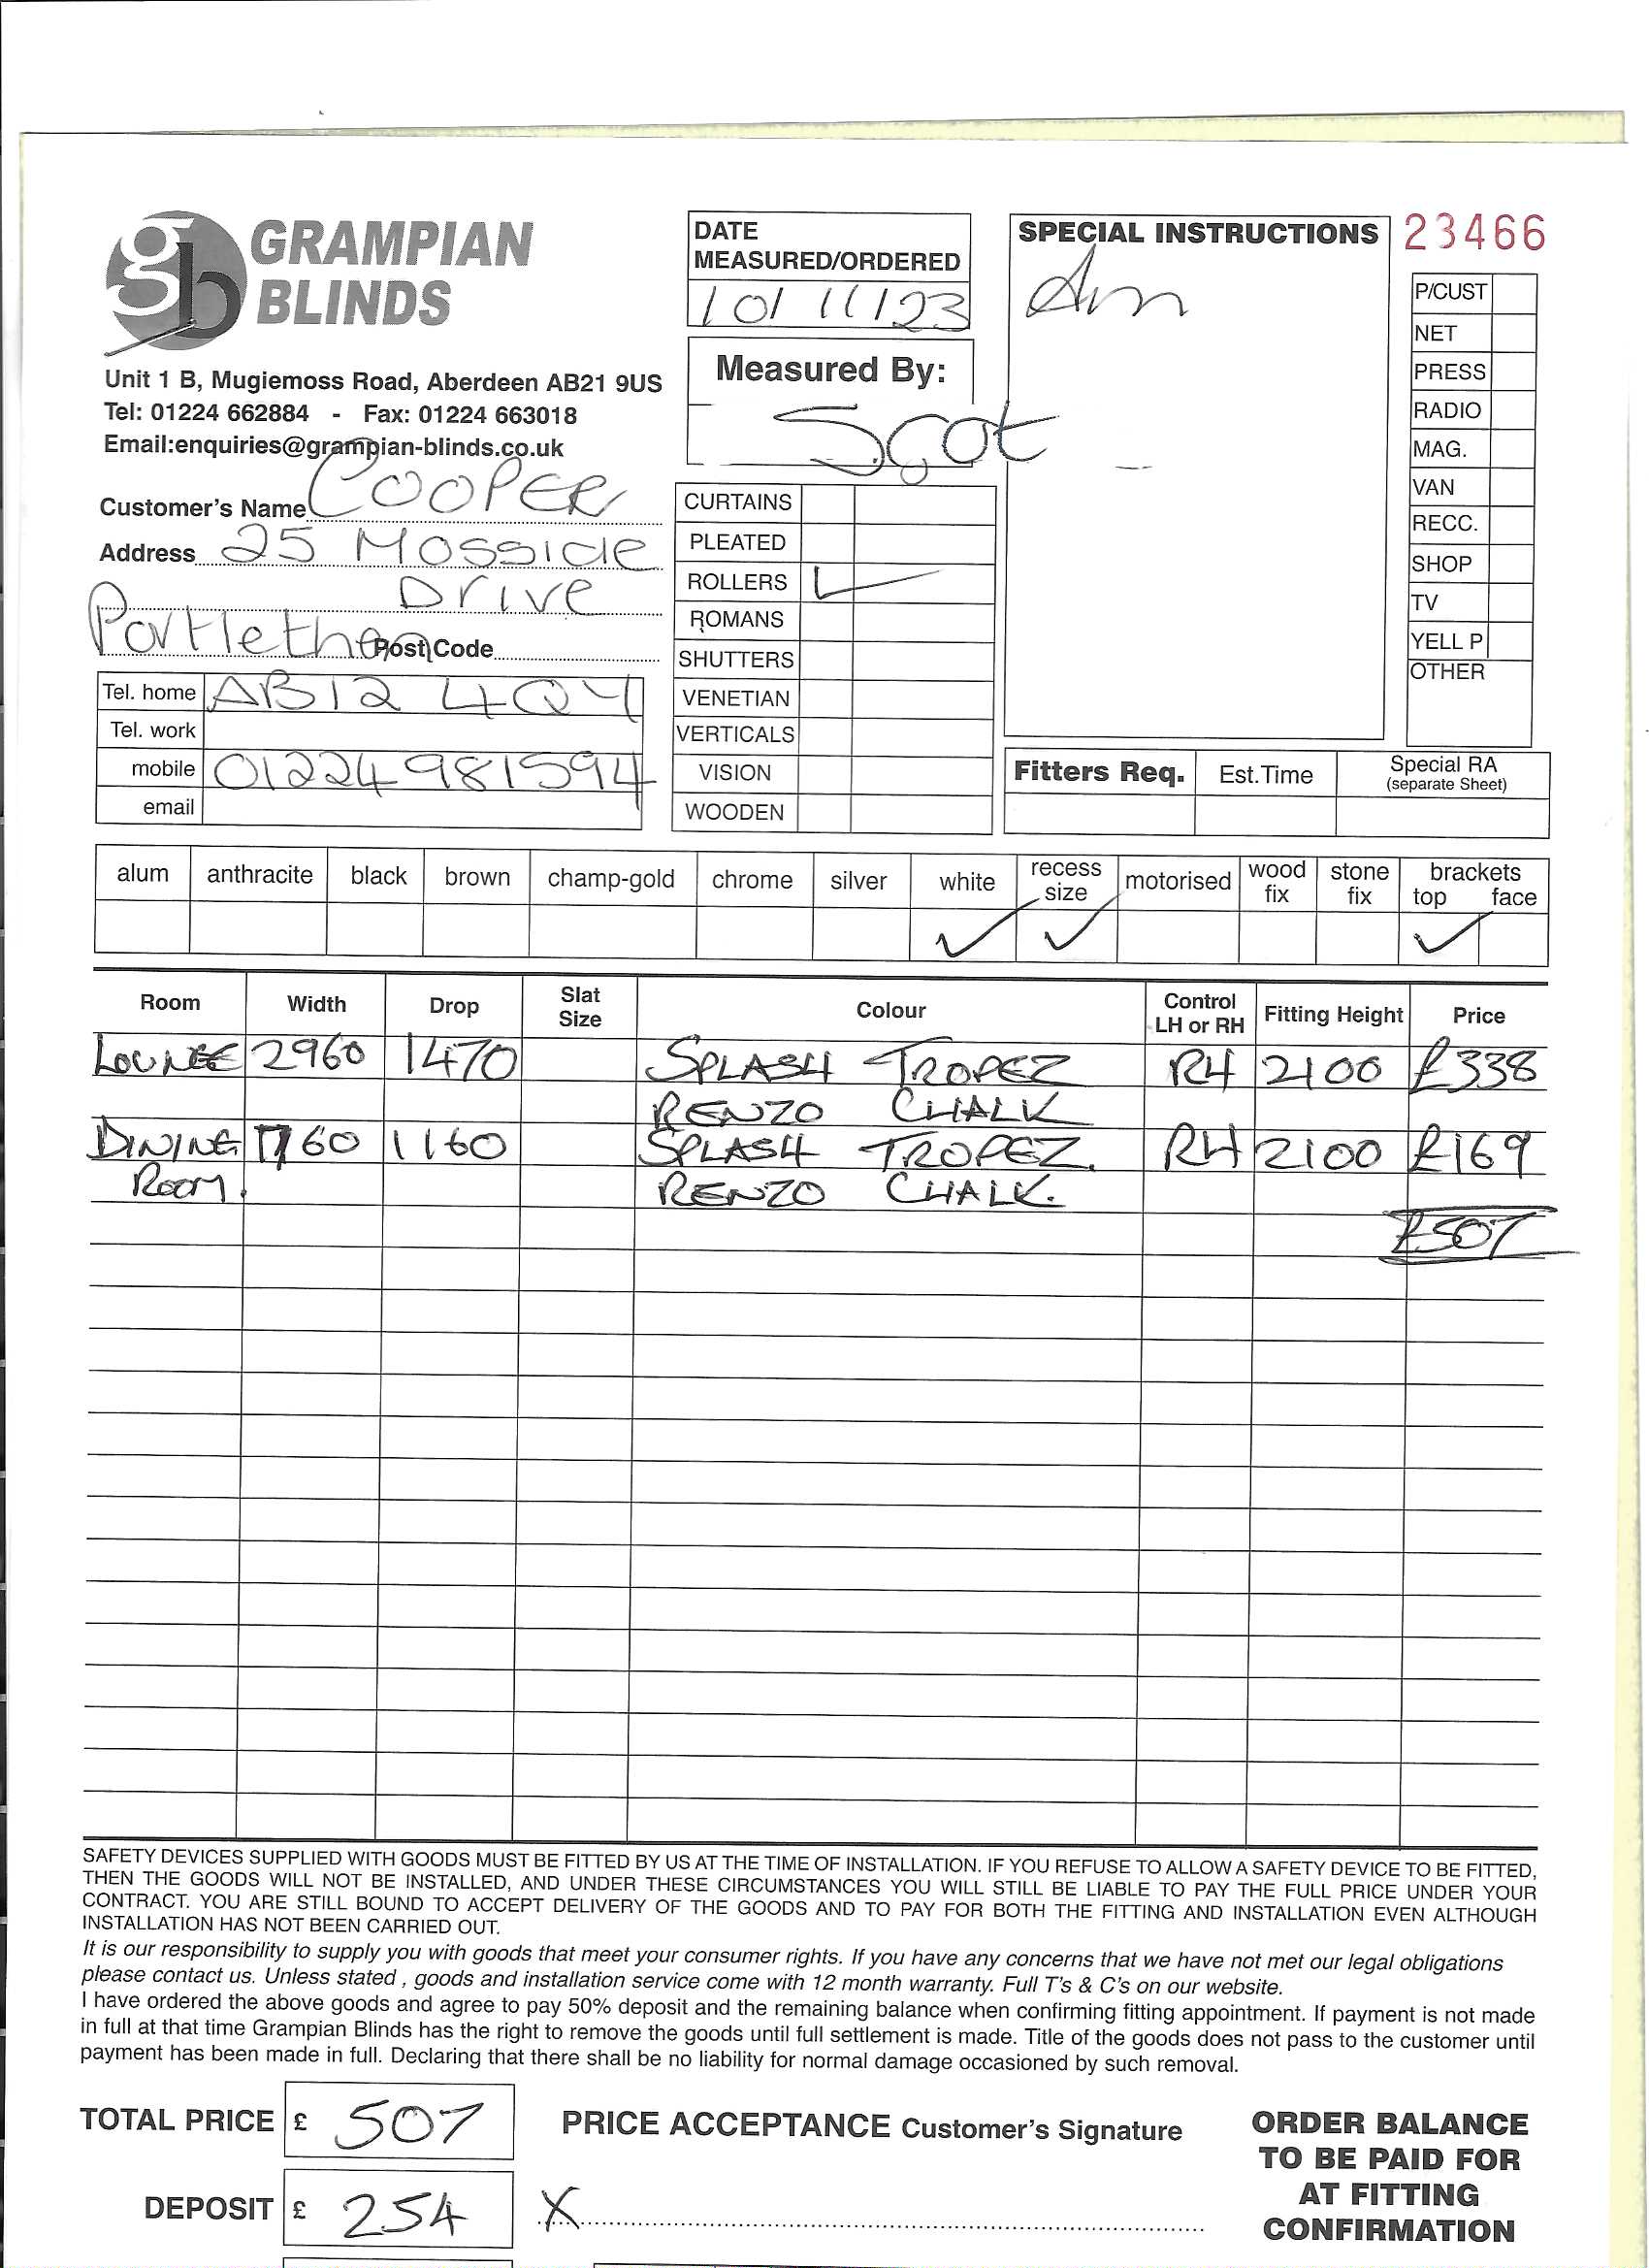 gb GRAMPIAN BLINDS
Unit 1 B, Mugiemoss Road, Aberdeen AB21 9US
Tel: 01224 662884 - Fax: 01224 663018
Email:enquiries@grampian-blinds.co.uk
Customer's Name COOPER
Address 25 Mosside
Drive
Portlethen Post Code
Tel. home AB12 4QY
Tel. work
mobile 01224 981594
email
DATE
MEASURED/ORDERED
10/11/23
Measured By:
Scot
CURTAINS
PLEATED
ROLLERS ✓
ROMANS
SHUTTERS
VENETIAN
VERTICALS
VISION
WOODEN
SPECIAL INSTRUCTIONS
23466
P/CUST
NET
PRESS
RADIO
MAG.
VAN
RECC.
SHOP
TV
YELL P
OTHER
Fitters Req. Est.Time Special RA
(separate Sheet)
alum anthracite black brown champ-gold chrome silver white recess size motorised wood fix stone fix brackets top face
✓ ✓ ✓
Room Width Drop Slat Size Colour Control LH or RH Fitting Height Price
LOUNGE 2960 1470 SPLASH TROPEZ RH 2100 £338
RENZO CHALK
DINING 1760 1160 SPLASH TROPEZ. RH 2100 £169
ROOM. RENZO CHALK.
£507
SAFETY DEVICES SUPPLIED WITH GOODS MUST BE FITTED BY US AT THE TIME OF INSTALLATION. IF YOU REFUSE TO ALLOW A SAFETY DEVICE TO BE FITTED,
THEN THE GOODS WILL NOT BE INSTALLED, AND UNDER THESE CIRCUMSTANCES YOU WILL STILL BE LIABLE TO PAY THE FULL PRICE UNDER YOUR
CONTRACT. YOU ARE STILL BOUND TO ACCEPT DELIVERY OF THE GOODS AND TO PAY FOR BOTH THE FITTING AND INSTALLATION EVEN ALTHOUGH
INSTALLATION HAS NOT BEEN CARRIED OUT.
It is our responsibility to supply you with goods that meet your consumer rights. If you have any concerns that we have not met our legal obligations
please contact us. Unless stated , goods and installation service come with 12 month warranty. Full T's & C's on our website.
I have ordered the above goods and agree to pay 50% deposit and the remaining balance when confirming fitting appointment. If payment is not made
in full at that time Grampian Blinds has the right to remove the goods until full settlement is made. Title of the goods does not pass to the customer until
payment has been made in full. Declaring that there shall be no liability for normal damage occasioned by such removal.
TOTAL PRICE £ 507
DEPOSIT £ 254
PRICE ACCEPTANCE Customer's Signature
X
ORDER BALANCE
TO BE PAID FOR
AT FITTING
CONFIRMATION